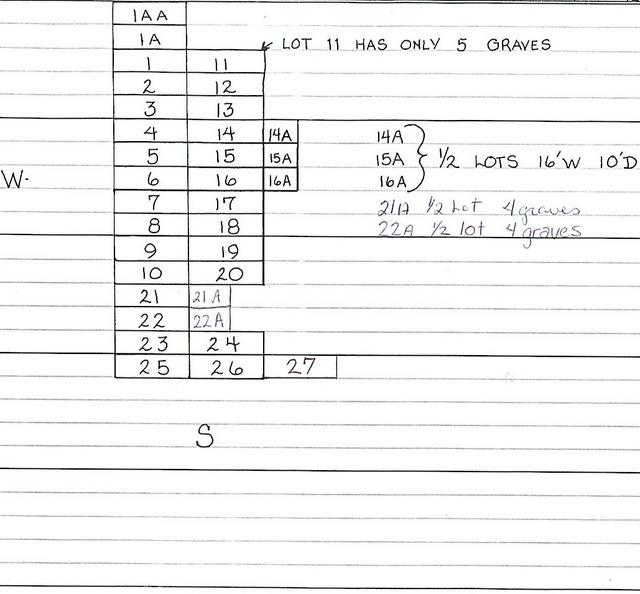 1AA
1A LOT 11 HAS ONLY 5 GRAVES
1 11
2 12
3 13
4 14 14A 14A
5 15 15A 15A } 1/2 LOTS 16'W 10'D
6 16 16A 16A
W.
7 17 21A 1/2 Lot 4 graves
8 18 22A 1/2 lot 4 graves
9 19
10 20
21 21A
22 22A
23 24
25 26 27
S